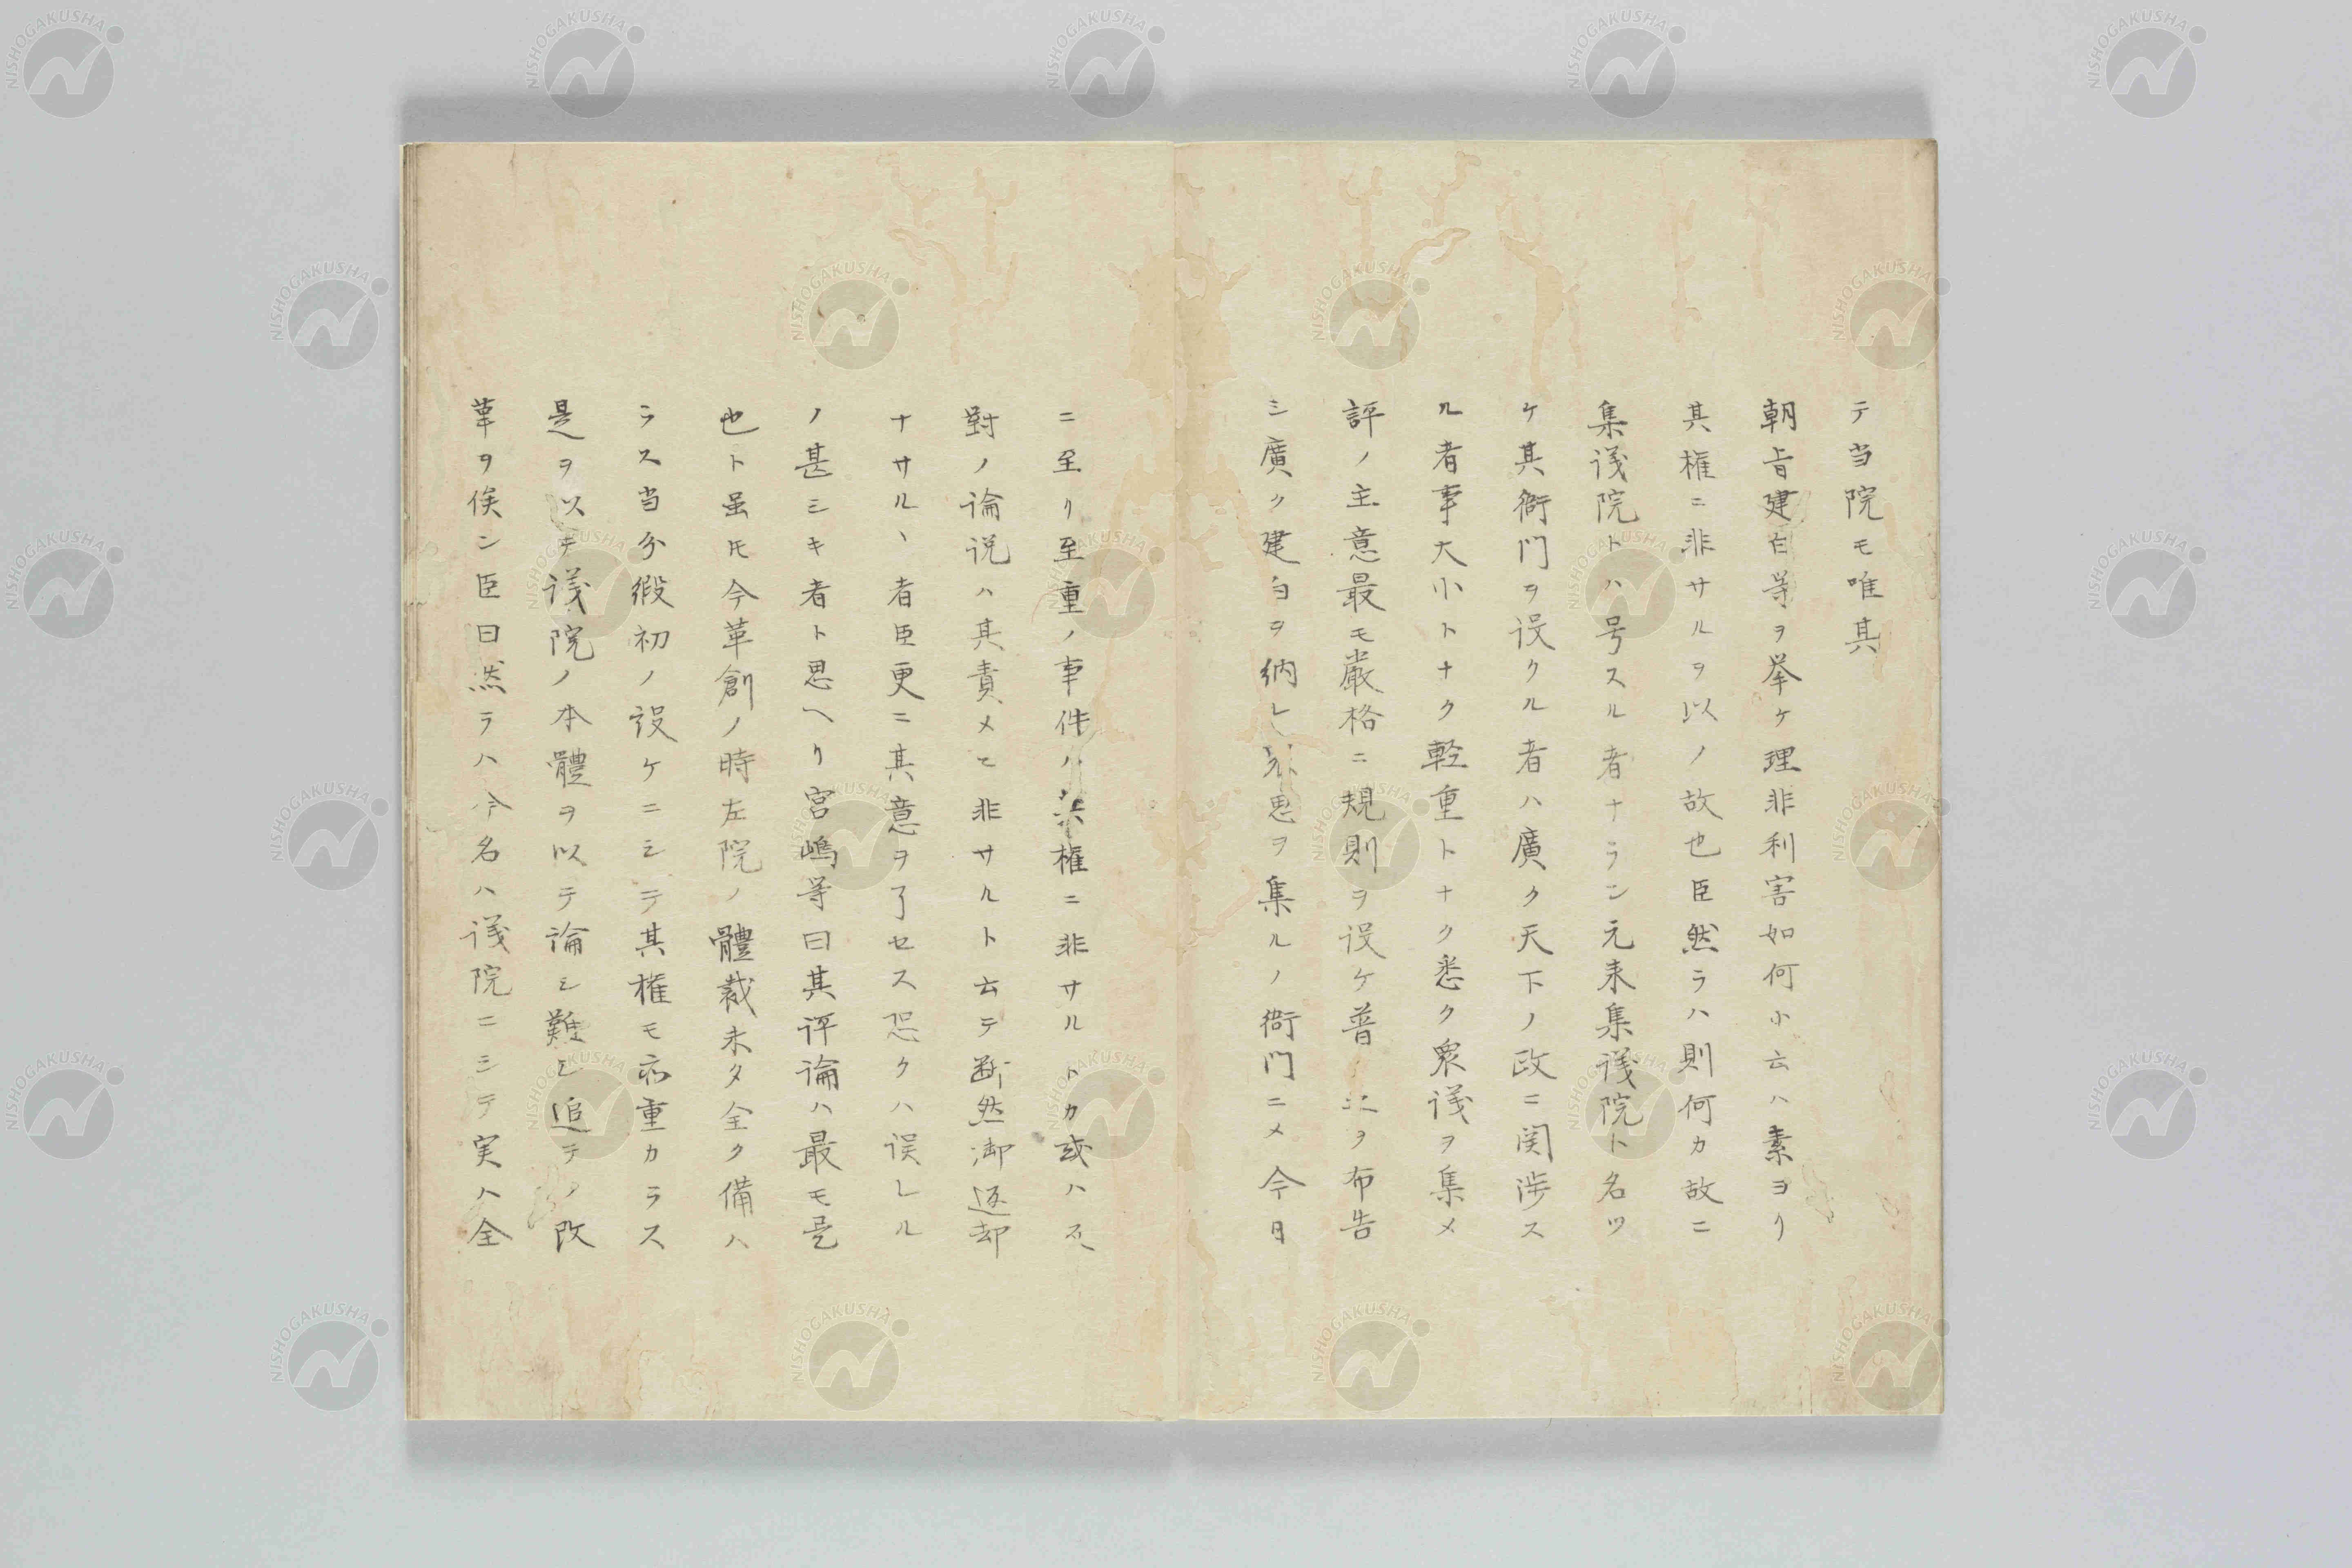 テ当院モ唯其
朝旨建白等ヲ挙ケ理非利害如何ホ云ハ素ヨリ
其権ニ非サルヲ以ノ故也臣然ラハ則何カ故ニ
集議院トハ号スル者ナラン元来集議院ト名ツ
ケ其衙門ヲ設クル者ハ廣ク天下ノ政ニ関渉ス
ル者事大小トナク軽重トナク悉ク衆議ヲ集メ
評ノ主意最モ厳格ニ規則ヲ設ケ普ク之ヲ布告
シ廣ク建白ヲ納レ衆思ヲ集ルノ衙門ニメ今日
ニ至リ至重ノ事件ハ其権ニ非サルトカ或ハ
對ノ論説ハ其責メニ非サルト云テ断然御返却
ナサルヽ者臣更ニ其意ヲ了セス恐クハ誤レル
ノ甚シキ者ト思ヘリ宮嶋等曰其評論ハ最モ是
也ト虽モ今革創ノ時左院ノ體裁未タ全ク備ハ
ラス当分緞初ノ設ケニシテ其権モ亦重カラス
是ヲ以テ議院ノ本體ヲ以テ論シ難シ追テノ改
革ヲ俟ン臣曰然ラハ今名ハ議院ニシテ実ハ全
NISHOGAKUSHA